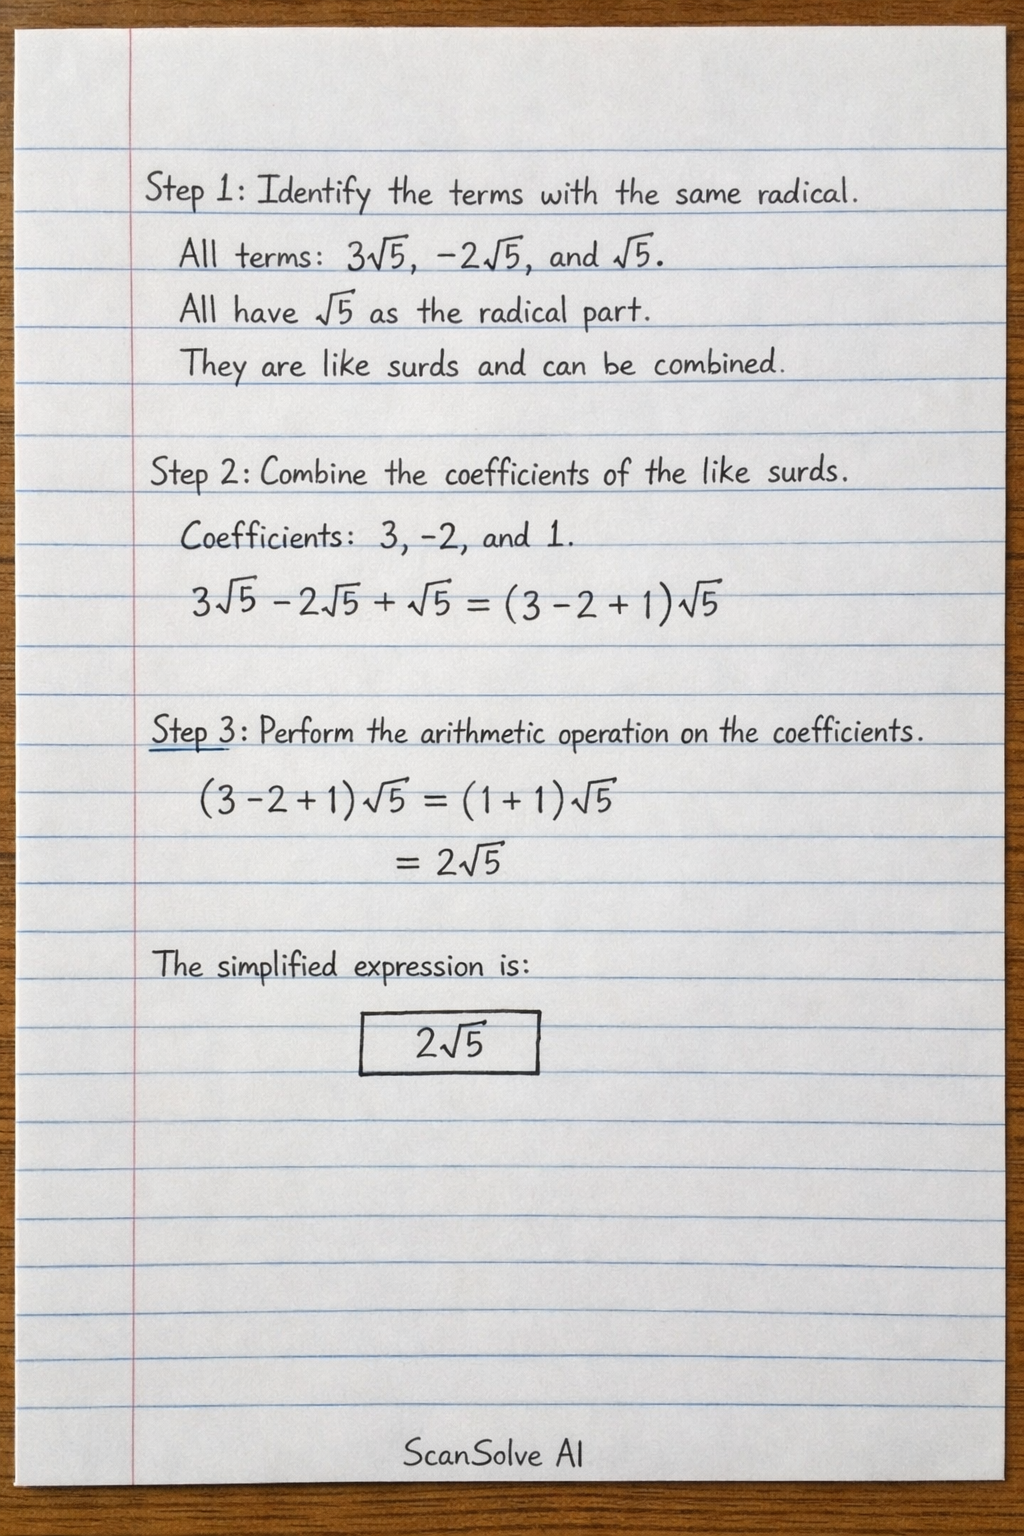 Step 1: Identify the terms with the same radical.
All terms: 3√5, −2√5, and √5.
All have √5 as the radical part.
They are like surds and can be combined.
Step 2: Combine the coefficients of the like surds.
Coefficients: 3, −2, and 1.
3√5 − 2√5 + √5 = (3 − 2 + 1)√5
Step 3: Perform the arithmetic operation on the coefficients.
(3 − 2 + 1)√5 = (1 + 1)√5
= 2√5
The simplified expression is:
2√5
ScanSolve AI